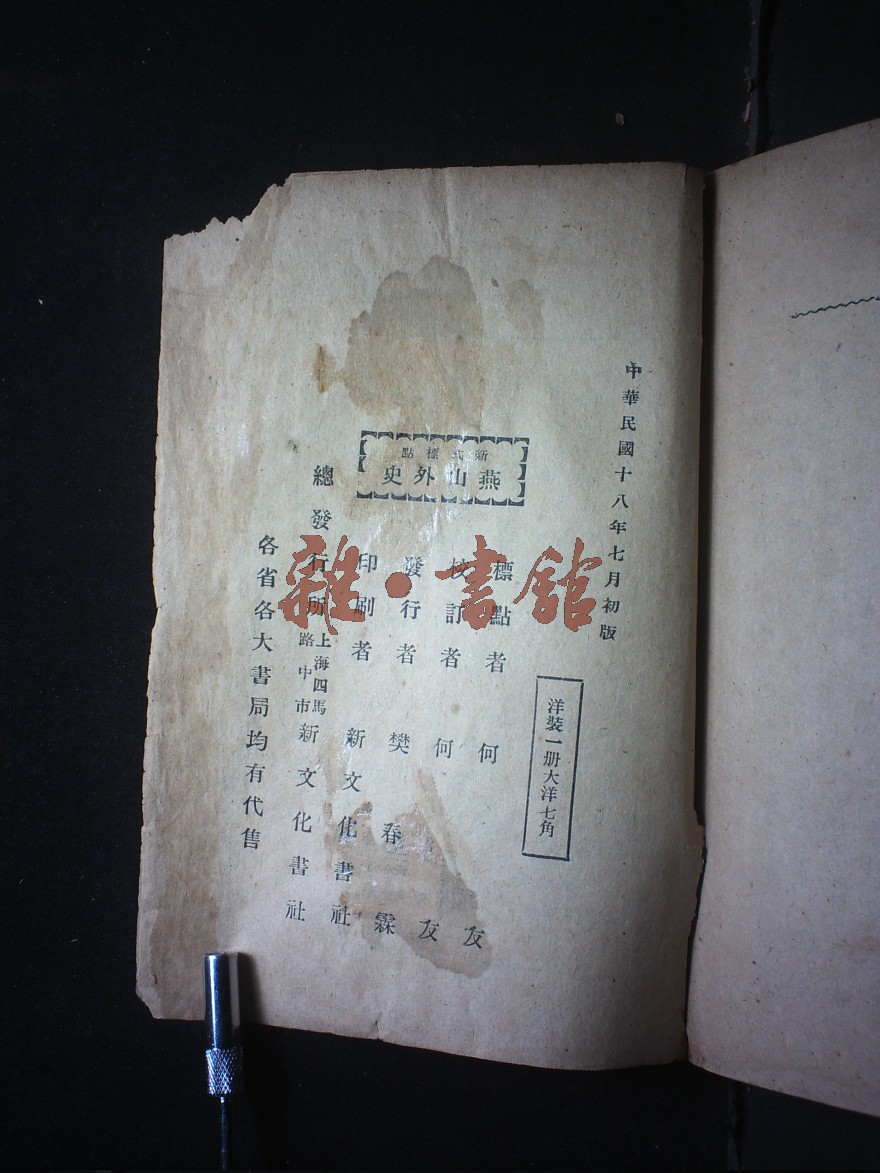 中華民國十八年七月初版
洋裝一册大洋七角
新式標點
燕山外史
標點者 何 友
校訂者 何 友
發行者 樊春霖
印刷者 新文化書社
總發行所 上海四馬路中市 新文化書社
各省各大書局均有代售
雜·書館